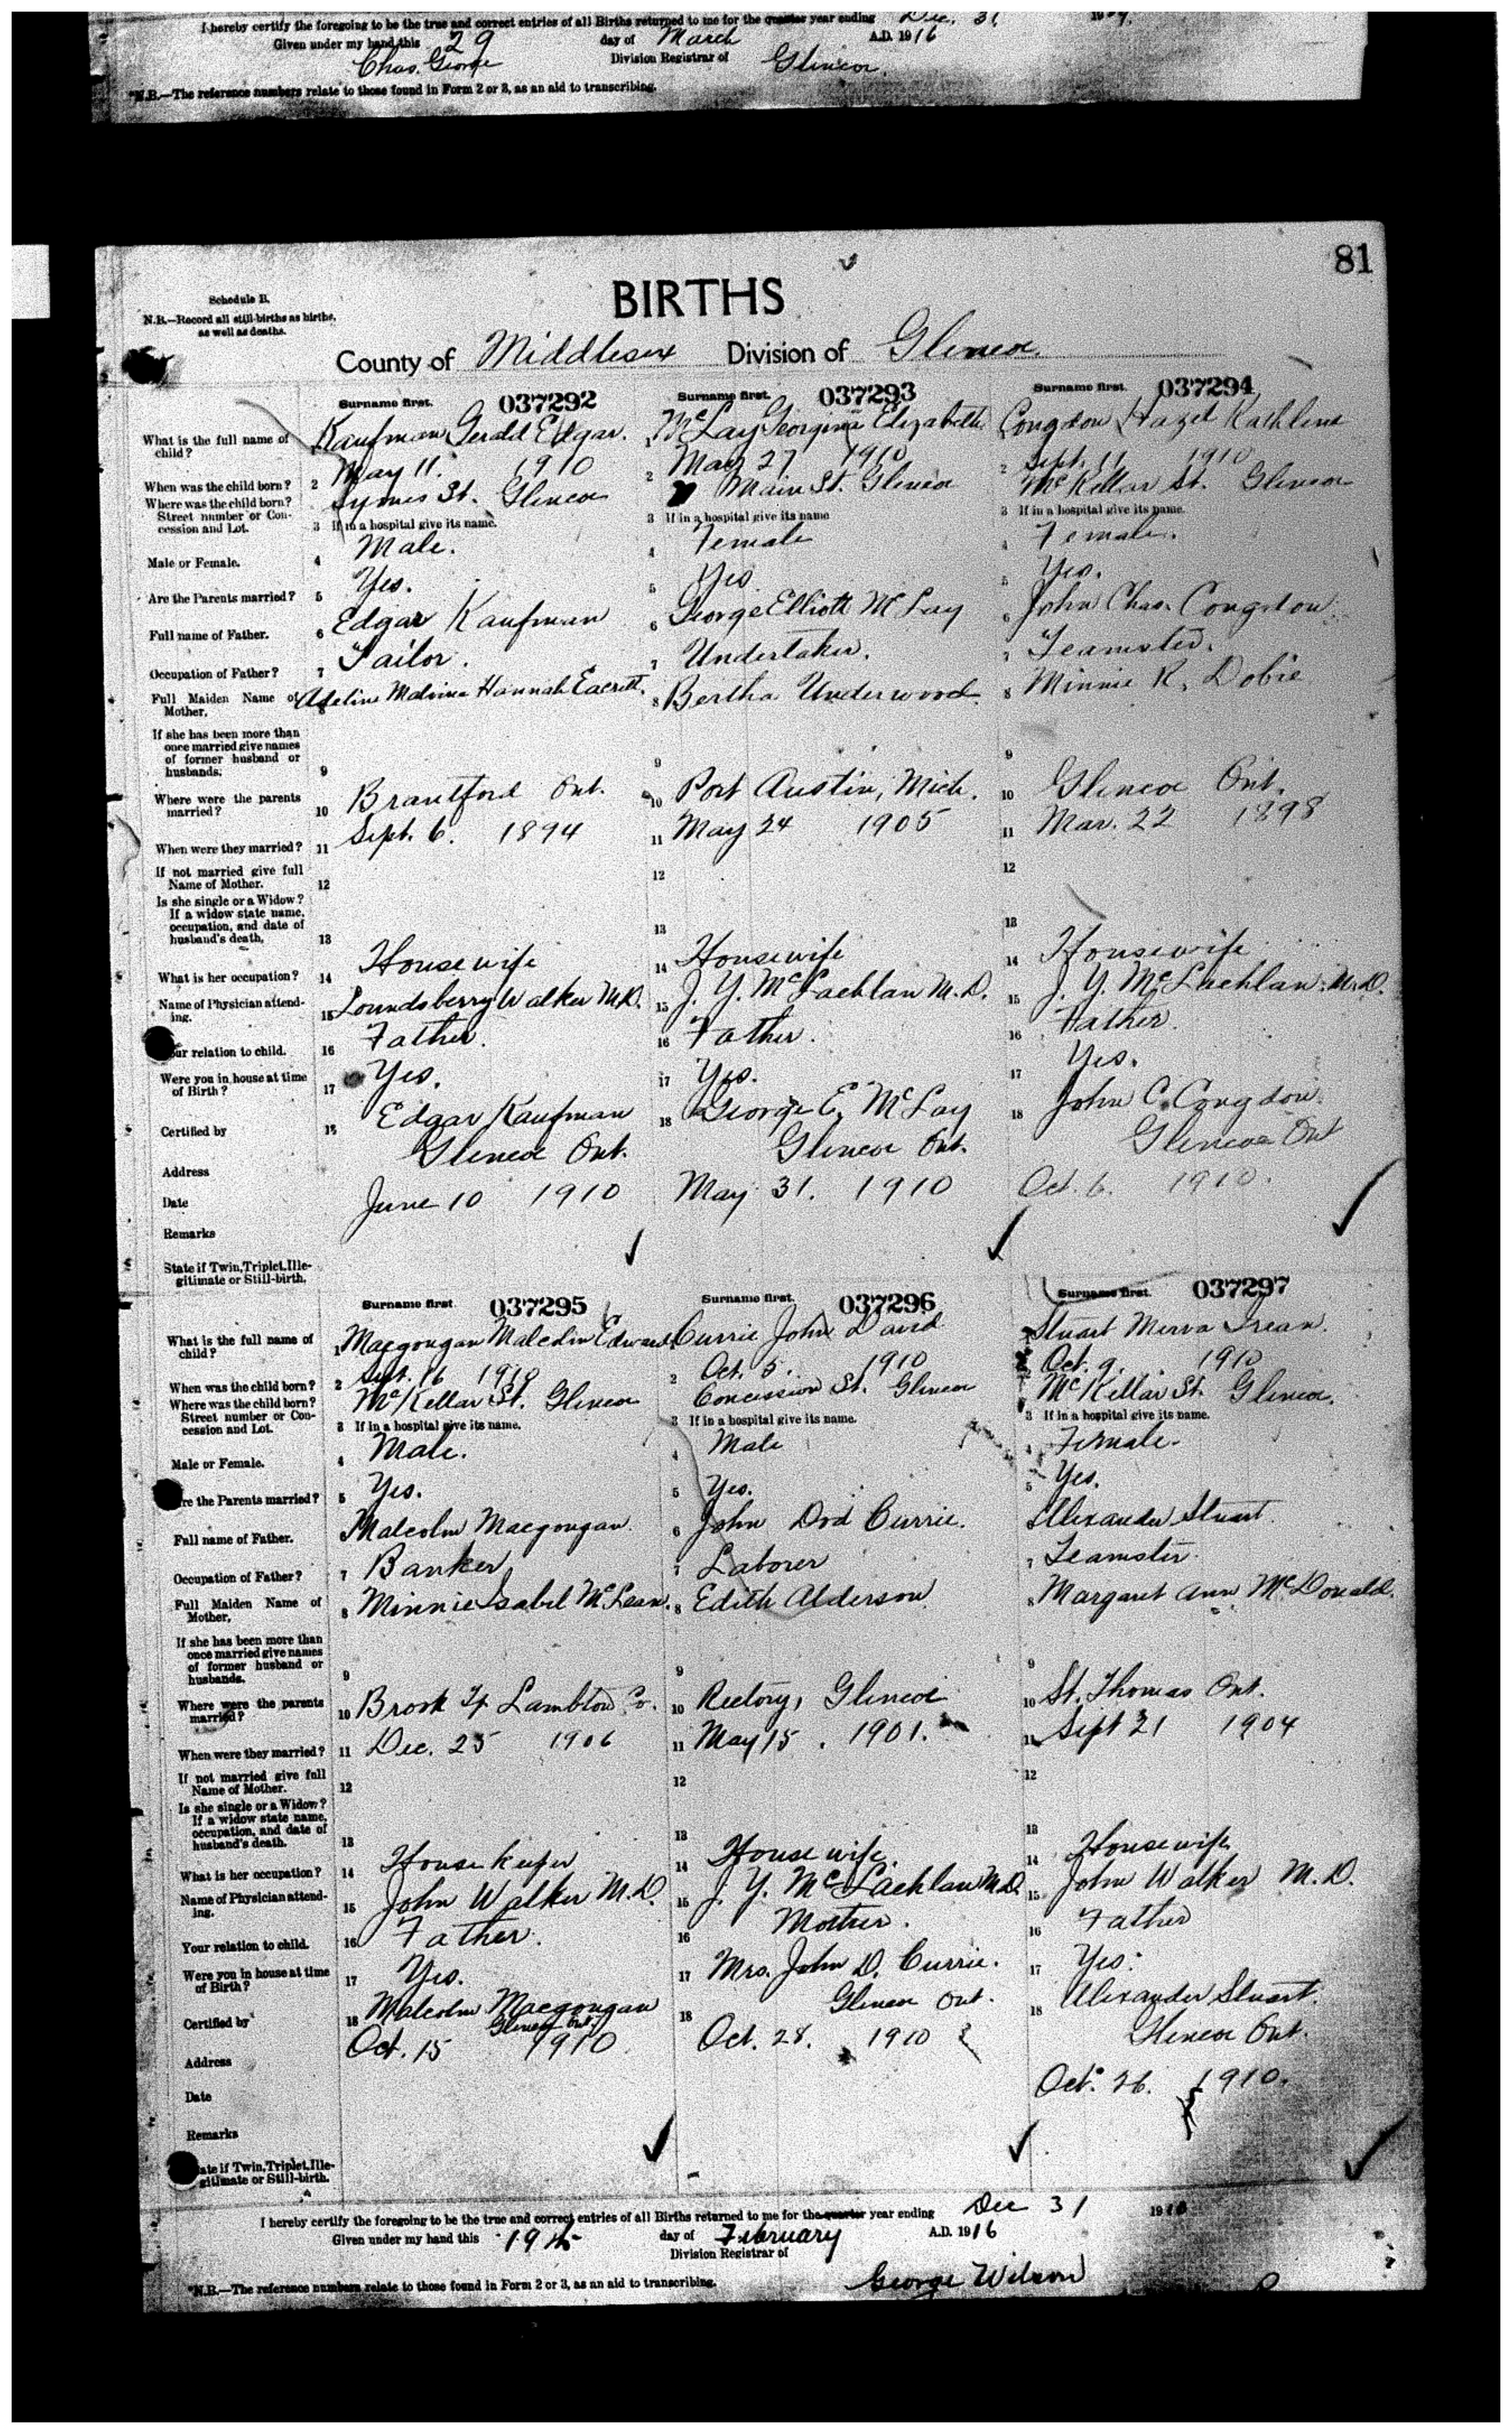 I hereby certify the foregoing to be the true and correct entries of all Births returned to me for the quarter year ending Dec. 31
Given under my hand this 29 day of March A.D. 1916
Chas. George Division Registrar of Glencoe.
*N.B.—The reference numbers relate to those found in Form 2 or 3, as an aid to transcribing.
81
Schedule B.
N.B.—Record all still-births as births, as well as deaths.
BIRTHS
County of Middlesex Division of Glencoe
Surname first. 037292 Surname first. 037293 Surname first. 037294
What is the full name of child? Kaufman Gerald Edgar. 1 McLay Georgina Elizabeth Congdon Hazel Kathline
When was the child born? 2 May 11. 1910 2 May 27 1910 2 Sept. 11 1910
Where was the child born? Street number or Concession and Lot. Symes St. Glencoe Main St. Glencoe McKellar St. Glencoe
3 If in a hospital give its name. 3 If in a hospital give its name 3 If in a hospital give its name.
Male or Female. 4 Male. 4 Female 4 Female.
Are the Parents married? 5 Yes. 5 Yes 5 Yes.
Full name of Father. 6 Edgar Kaufman 6 George Elliott McLay 6 John Chas. Congdon
Occupation of Father? 7 Tailor. 7 Undertaker. 7 Teamster.
Full Maiden Name of Mother. 8 Adeline Malvina Hannah 8 Bertha Underwood 8 Minnie R. Dobie
If she has been more than once married give names of former husband or husbands. 9 9 9
Where were the parents married? 10 Brantford Ont. 10 Port Austin, Mich. 10 Glencoe Ont.
When were they married? 11 Sept. 6. 1894 11 May 24 1905 11 Mar. 22 1898
If not married give full Name of Mother. 12 12 12
Is she single or a Widow? If a widow state name, occupation, and date of husband's death. 13 13 13
What is her occupation? 14 Housewife 14 Housewife 14 Housewife
Name of Physician attending. 15 Loundsberry Walker M.D. 15 J. Y. McLachlan M.D. 15 J. Y. McLachlan M.D.
our relation to child. 16 Father. 16 Father. 16 Father
Were you in house at time of Birth? 17 Yes. 17 Yes. 17 Yes.
Certified by 18 Edgar Kaufman 18 George E. McLay 18 John C. Congdon
Address Glencoe Ont. Glencoe Ont. Glencoe Ont
Date June 10 1910 May 31. 1910 Oct. 6. 1910.
Remarks
State if Twin, Triplet, Illegitimate or Still-birth.
Surname first 037295 Surname first. 037296 Surname first. 037297
What is the full name of child? 1 Macgougan Malcolm Edward Currie John David Stuart Merva Irean.
When was the child born? 2 Sept. 16 1910 2 Oct. 5. 1910 Oct. 9. 1910
Where was the child born? Street number or Concession and Lot. McKellar St. Glencoe Concession St. Glencoe McKellar St. Glencoe.
3 If in a hospital give its name. 3 If in a hospital give its name. 3 If in a hospital give its name.
Male or Female. 4 Male. 4 Male 4 Female.
re the Parents married? 5 Yes. 5 Yes. 5 Yes.
Full name of Father. Malcolm Macgougan 6 John Dvd Currie. Alexander Stuart.
Occupation of Father? 7 Banker 7 Laborer 7 Teamster.
Full Maiden Name of Mother. 8 Minnie Isabel McLean. 8 Edith Alderson 8 Margaret Ann McDonald.
If she has been more than once married give names of former husband or husbands. 9 9 9
Where were the parents married? 10 Brook Tp Lambton Co. 10 Rectory, Glencoe 10 St. Thomas Ont.
When were they married? 11 Dec. 25 1906 11 May 15. 1901. 11 Sept 21 1904
If not married give full Name of Mother. 12 12 12
Is she single or a Widow? If a widow state name, occupation, and date of husband's death. 13 13 13
What is her occupation? 14 Housekeeper 14 Housewife. 14 Housewife
Name of Physician attending. 15 John Walker M.D. 15 J. Y. McLachlan M.D. 15 John Walker M.D.
Your relation to child. 16 Father. 16 Mother. 16 Father
Were you in house at time of Birth? 17 Yes. 17 Mrs. John D. Currie. 17 Yes.
Certified by 18 Malcolm Macgougan 18 Glencoe Ont. 18 Alexander Stuart.
Address Glencoe Ont. Glencoe Ont.
Date Oct. 15 1910 Oct. 28. 1910 Oct. 26. 1910.
Remarks
ate if Twin, Triplet, Illegitimate or Still-birth.
I hereby certify the foregoing to be the true and correct entries of all Births returned to me for the quarter year ending Dec 31 1910
Given under my hand this 19th day of February A.D. 1916
Division Registrar of
George Wilson
*N.B.—The reference numbers relate to those found in Form 2 or 3, as an aid to transcribing.